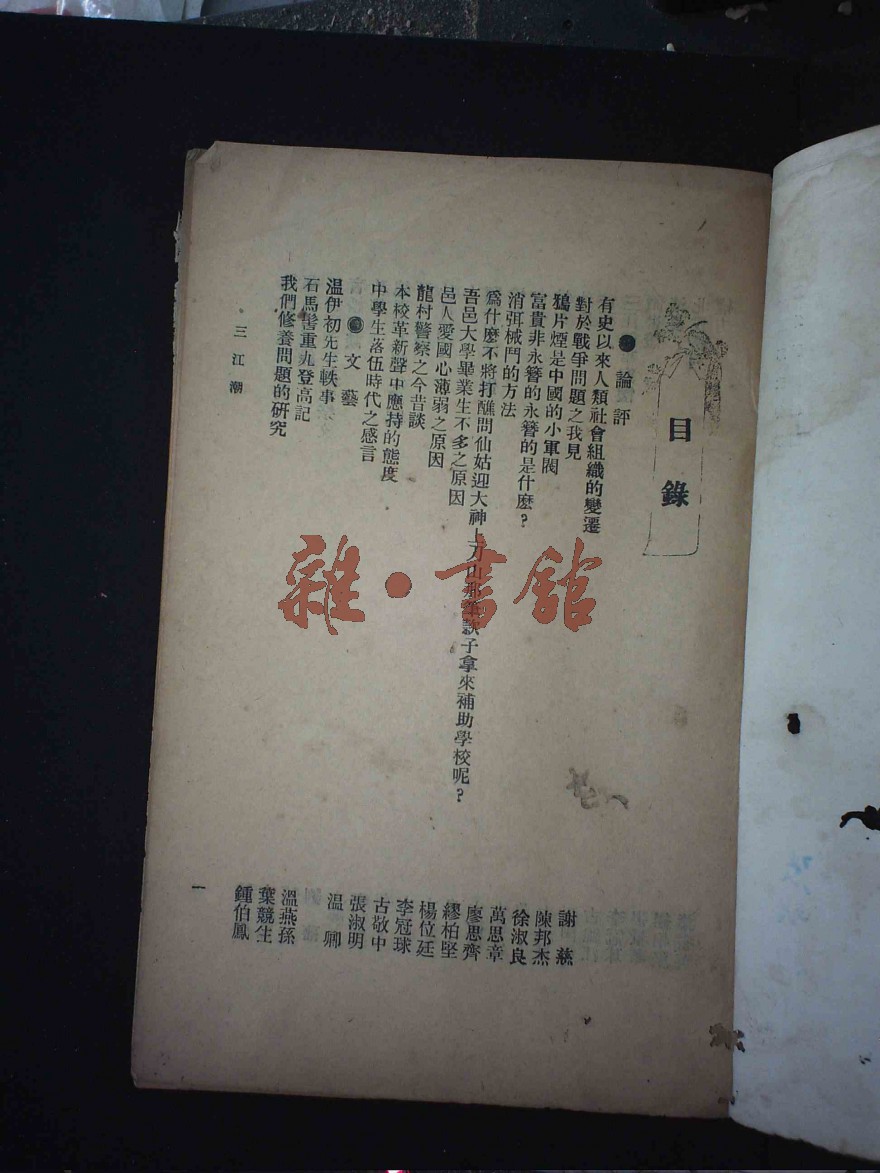 目錄
●論評
有史以來人類社會組織的變遷 謝慈
對於戰爭問題之我見 陳邦杰
鴉片煙是中國的小軍閥 徐淑良
富貴非永簪的永簪的是什麼？ 萬思章
消弭械鬥的方法 廖思齊
爲什麼不將打醮問仙姑迎大神上刀山那筆款子拿來補助學校呢？ 繆柏堅
吾邑大學畢業生不多之原因 楊位廷
邑人愛國心薄弱之原因 李冠球
龍村警察之今昔談 古敬中
本校革新聲中應持的態度 張淑明
中學生落伍時代之感言 温卿
●文藝
温伊初先生軼事 溫燕孫
石馬髻重九登高記 葉競生
我們修養問題的研究 鍾伯鳳
三江潮
一
雜·書館